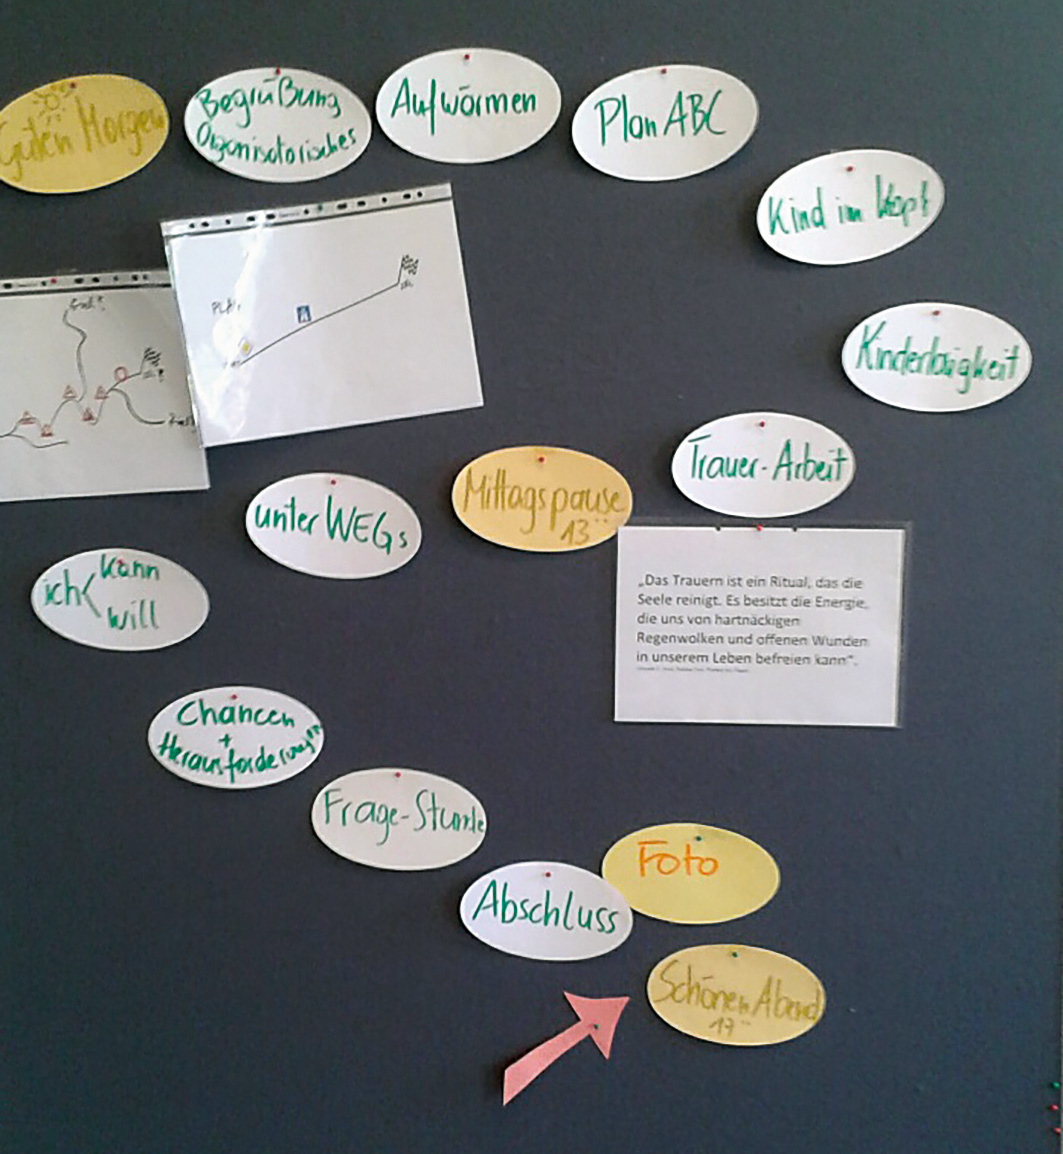 Guten Morgen
Begrüßung
Organisatorisches
Aufwärmen
Plan ABC
Kind im Kopf
Kinderlosigkeit
Trauer-Arbeit
„Das Trauern ist ein Ritual, das die
Seele reinigt. Es besitzt die Energie,
die uns von hartnäckigen
Regenwolken und offenen Wunden
in unserem Leben befreien kann“.
Mittagspause
13⁰⁰
unter WEGs
ich
kann
will
Chancen
+
Herausforderungen
Frage-Stunde
Abschluss
Foto
Schönen Abend
17⁰⁰